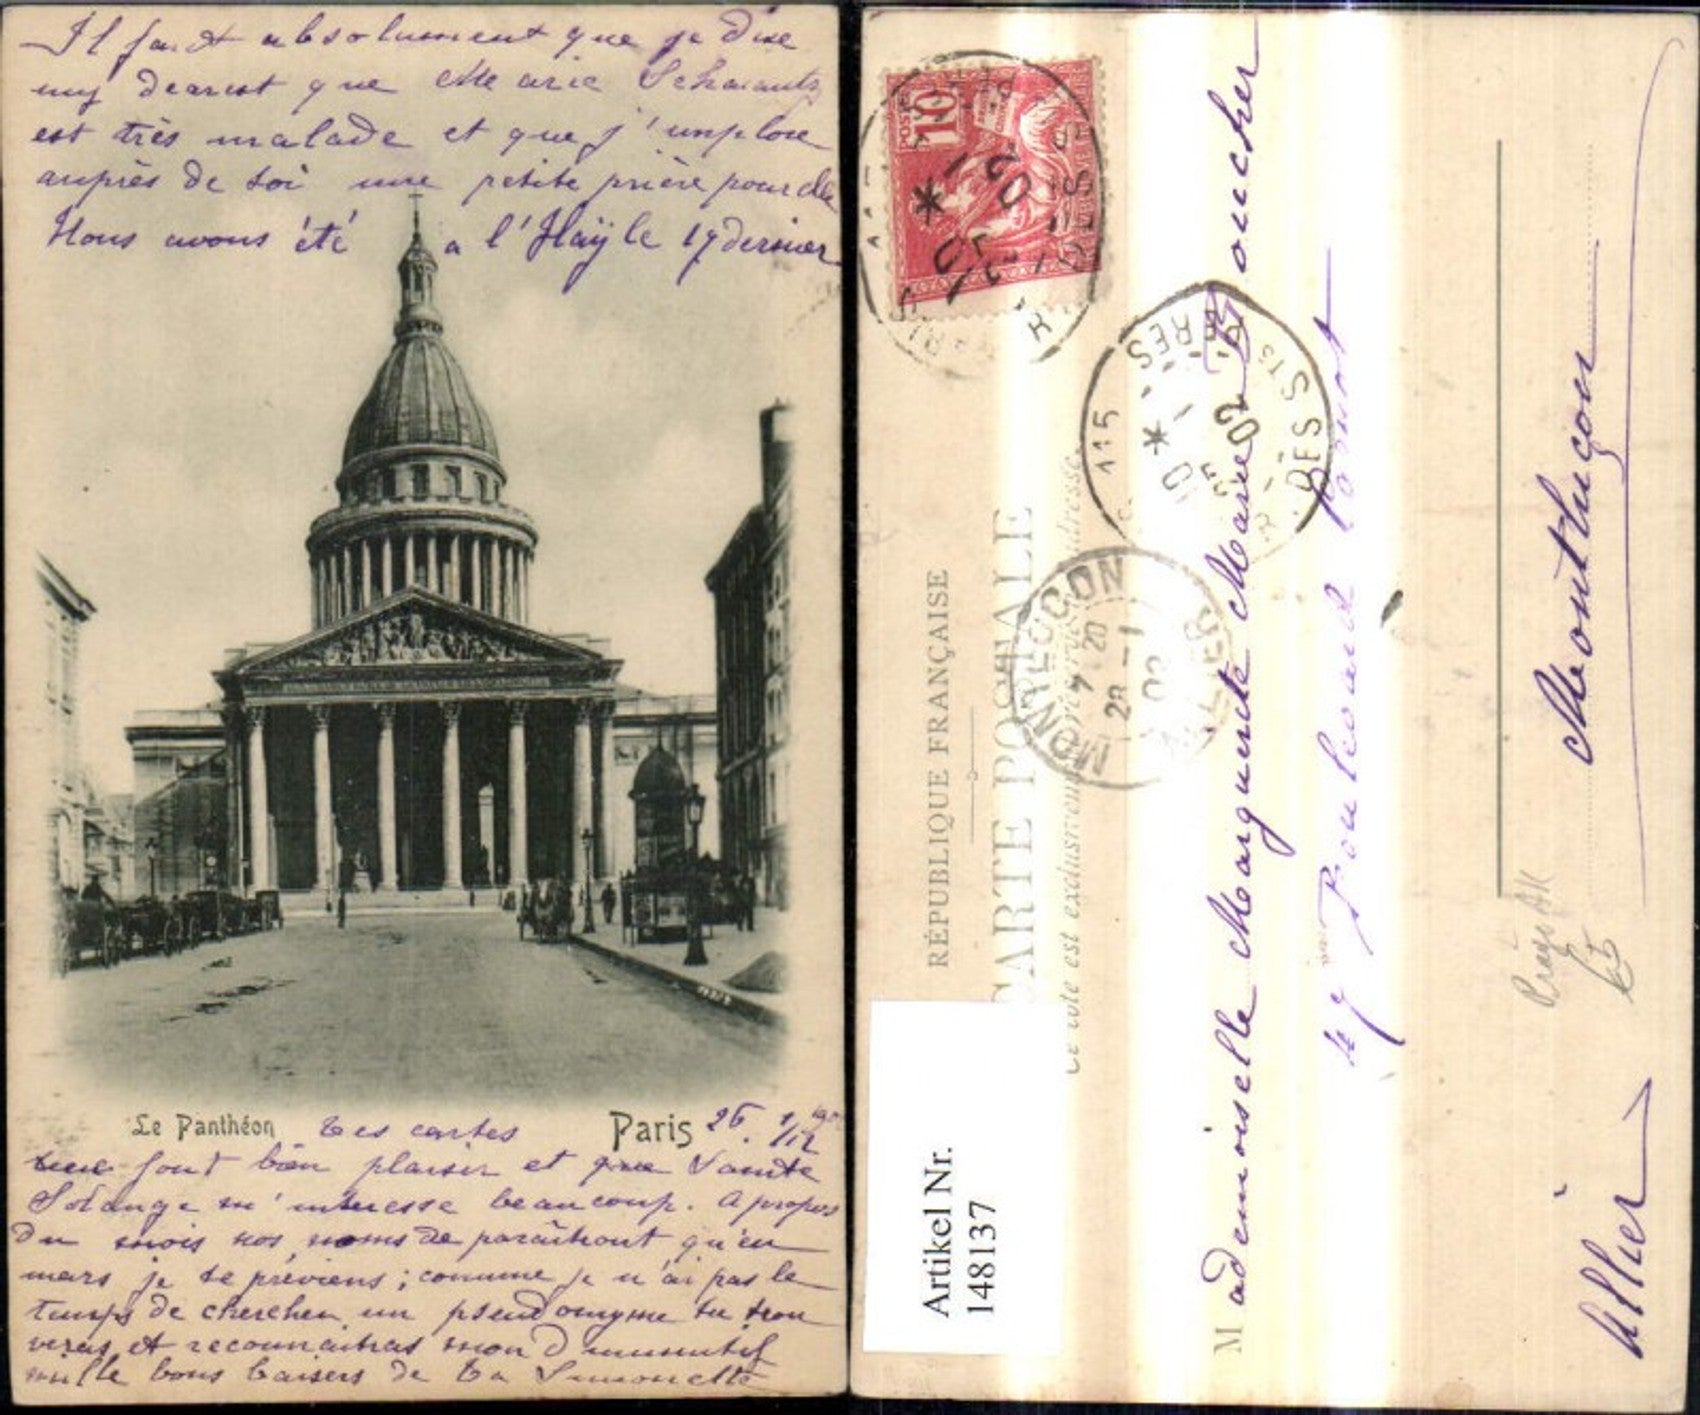 Il faut absolument que je dise
my dearest que Marie Schwantz
est très malade et que j'implore
auprès de toi une petite prière pour elle
Nous avons été a l'Haÿ le 19 dernier
Le Panthéon Tes cartes Paris 26. 1/12
me font bien plaisir et que Sainte
Solange m'intéresse beaucoup. A propos
du mois nos noms de paraîtront qu'en
mars je te préviens ; comme je n'ai pas le
temps de chercher un pseudonyme tu trou
veras et reconnaitras mon Diminutif
mille bons baisers de ta Simonette
POSTE
10
RÉPUBLIQUE FRANÇAISE
CARTE POSTALE
Ce côté est exclusivement réservé à l'adresse.
115
02
MONTLUCON
7 20
28 - 1
02
ALLIER
Mademoiselle Marguerite Marie Boucher
47 Boulevard Carnot
Montluçon
Allier
Artikel Nr.
148137